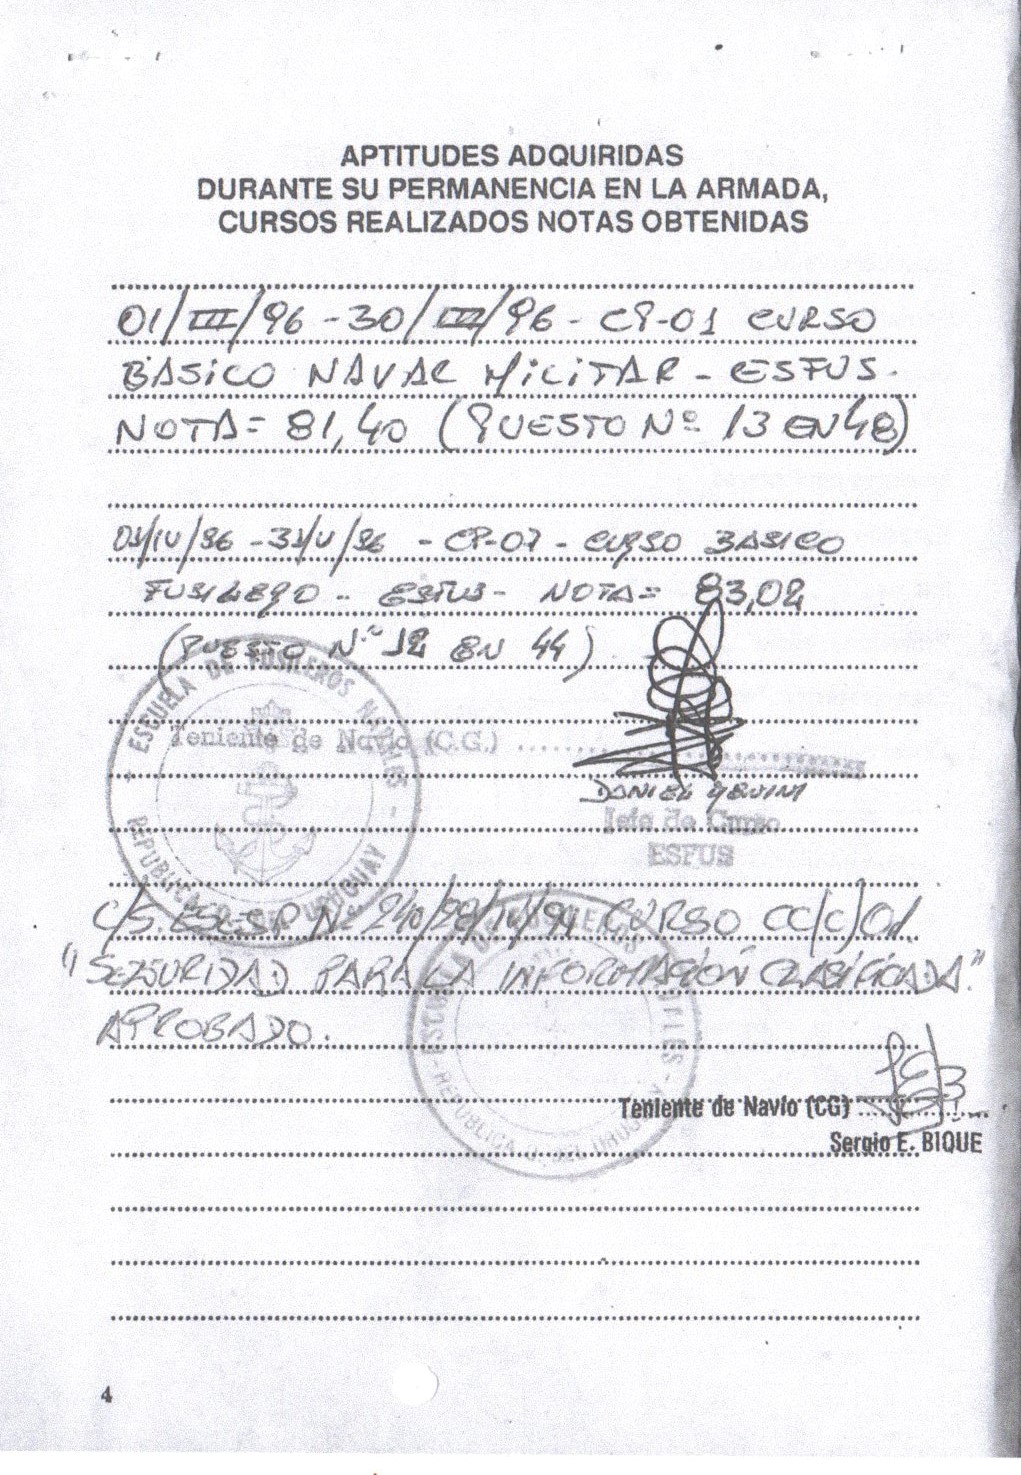 APTITUDES ADQUIRIDAS
DURANTE SU PERMANENCIA EN LA ARMADA,
CURSOS REALIZADOS NOTAS OBTENIDAS
01/III/96 - 30/III/96 - CP-01 CURSO
BASICO NAVAL MILITAR - ESFUS.
NOTA = 81,40 (PUESTO Nº 13 EN 48)
01/IV/96 - 31/V/96 - CP-07 - CURSO BASICO
FUSILERO - ESFUS - NOTA = 83,02
(PUESTO N.º 12 EN 44)
ESCUELA DE FUSILEROS NAVALES
REPUBLICA O. DEL URUGUAY
Teniente de Navío (C.G.)
DANIEL
Jefe de Curso
ESFUS
C/S. ESESP Nº 240/29/IV/97 CURSO CC(C)01.
"SEGURIDAD PARA LA INFORMACIÓN CLASIFICADA."
APROBADO.
REPUBLICA O. DEL URUGUAY
Teniente de Navío (CG)
Sergio E. BIQUE
4